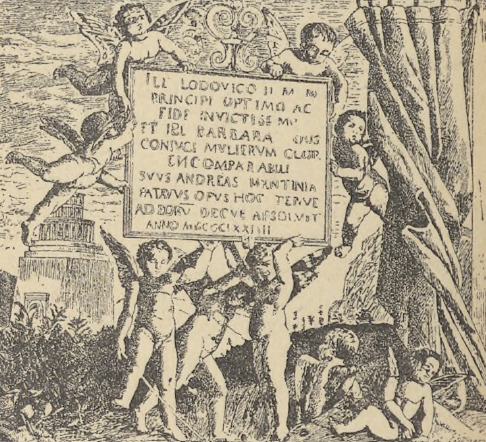 ILL LODOVICO II M M
PRINCIPI OPTIMO AC
FIDE INVICTISSMO
ET ILL BARBARA EIUS
CONIUGI MULIERUM GLOR
INCOMPARABILI
SVVS ANDREAS MANTINIA
PATAVVS OPVS HOC TENVE
AD EORV DECVS ABSOLVIT
ANNO MCCCCLXXIIII